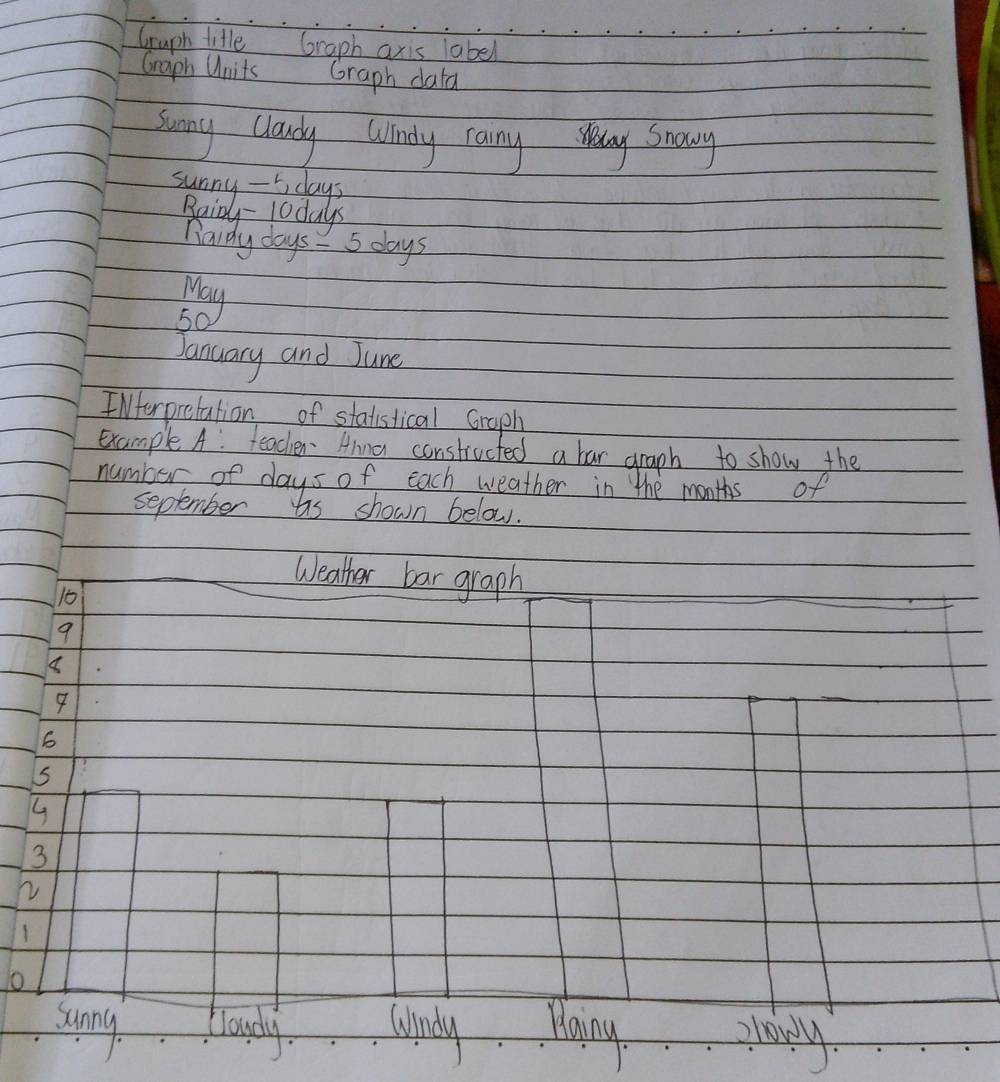 Graph title Graph axis label
Graph Units Graph data
Sunny Cloudy Windy rainy Snowy
Sunny - 5 days
Rainy - 10 days
days = 5 days
May
50
January and June
INterpretation of statistical Graph
Example A: teacher Anna constructed a bar graph to show the
number of days of each weather in the months of
september as shown below.
Weather bar graph
10
9
8
7
6
5
4
3
2
1
0
Sunny Cloudy Windy Rainy Snowy